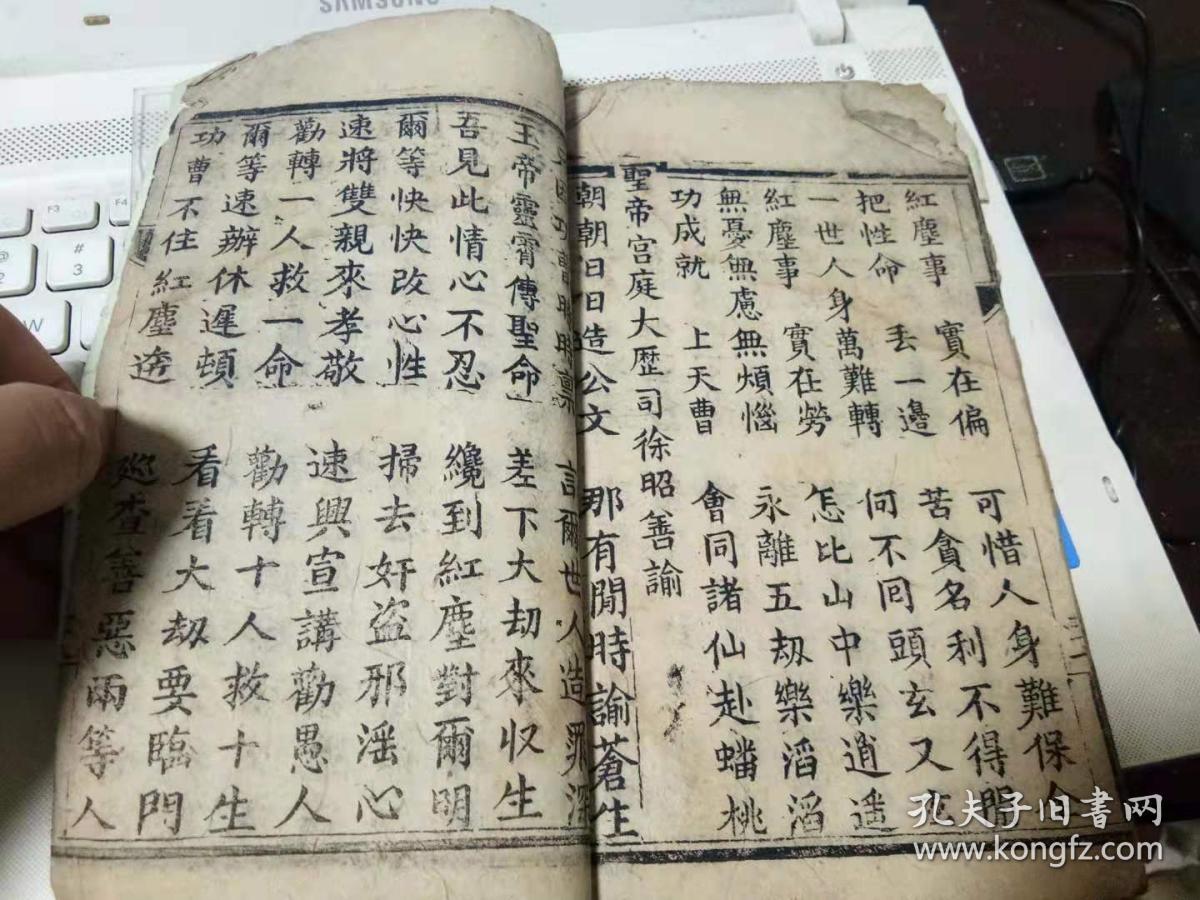 SAMSUNG
紅塵事 實在偏 可惜人身難保全
把性命 丢一邊 苦貪名利不得閒
一世人身萬難轉 何不囘頭玄又玄
紅塵事 實在勞 怎比山中樂道遥
無憂無慮無煩惱 永離五劫樂滔滔
功成就 上天曹 會同諸仙赴蟠桃
聖帝宫庭大歷司徐昭善諭
朝朝日日造公文 那有閒時諭蒼生
言爾世人造罪深
玉帝靈霄傳聖命 差下大劫來収生
吾見此情心不忍 纔到紅塵對爾明
爾等快快改心性 掃去奸盗邪滛心
速將雙親來孝敬 速興宣講勸愚人
勸轉一人救一命 勸轉十人救十生
爾等速辦休遲頓 看看大劫要臨門
功曹不住紅塵遶 廵查善惡兩等人
F3
F4
#
3
@
2
W
孔夫子旧書网
www.kongfz.com